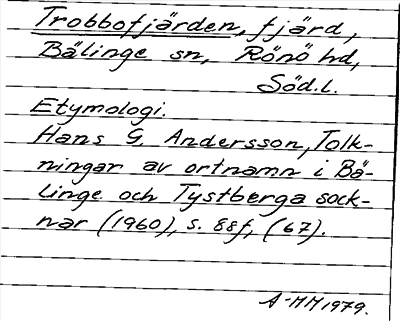 Trobbofjärden, fjärd,
Bälinge sn, Rönö hd,
Söd.l.
Etymologi.
Hans G. Andersson, Tolk-
ningar av ortnamn i Bä-
linge och Tystberga sock-
nar (1960), s. 88f, (67).
A-MM 1979.